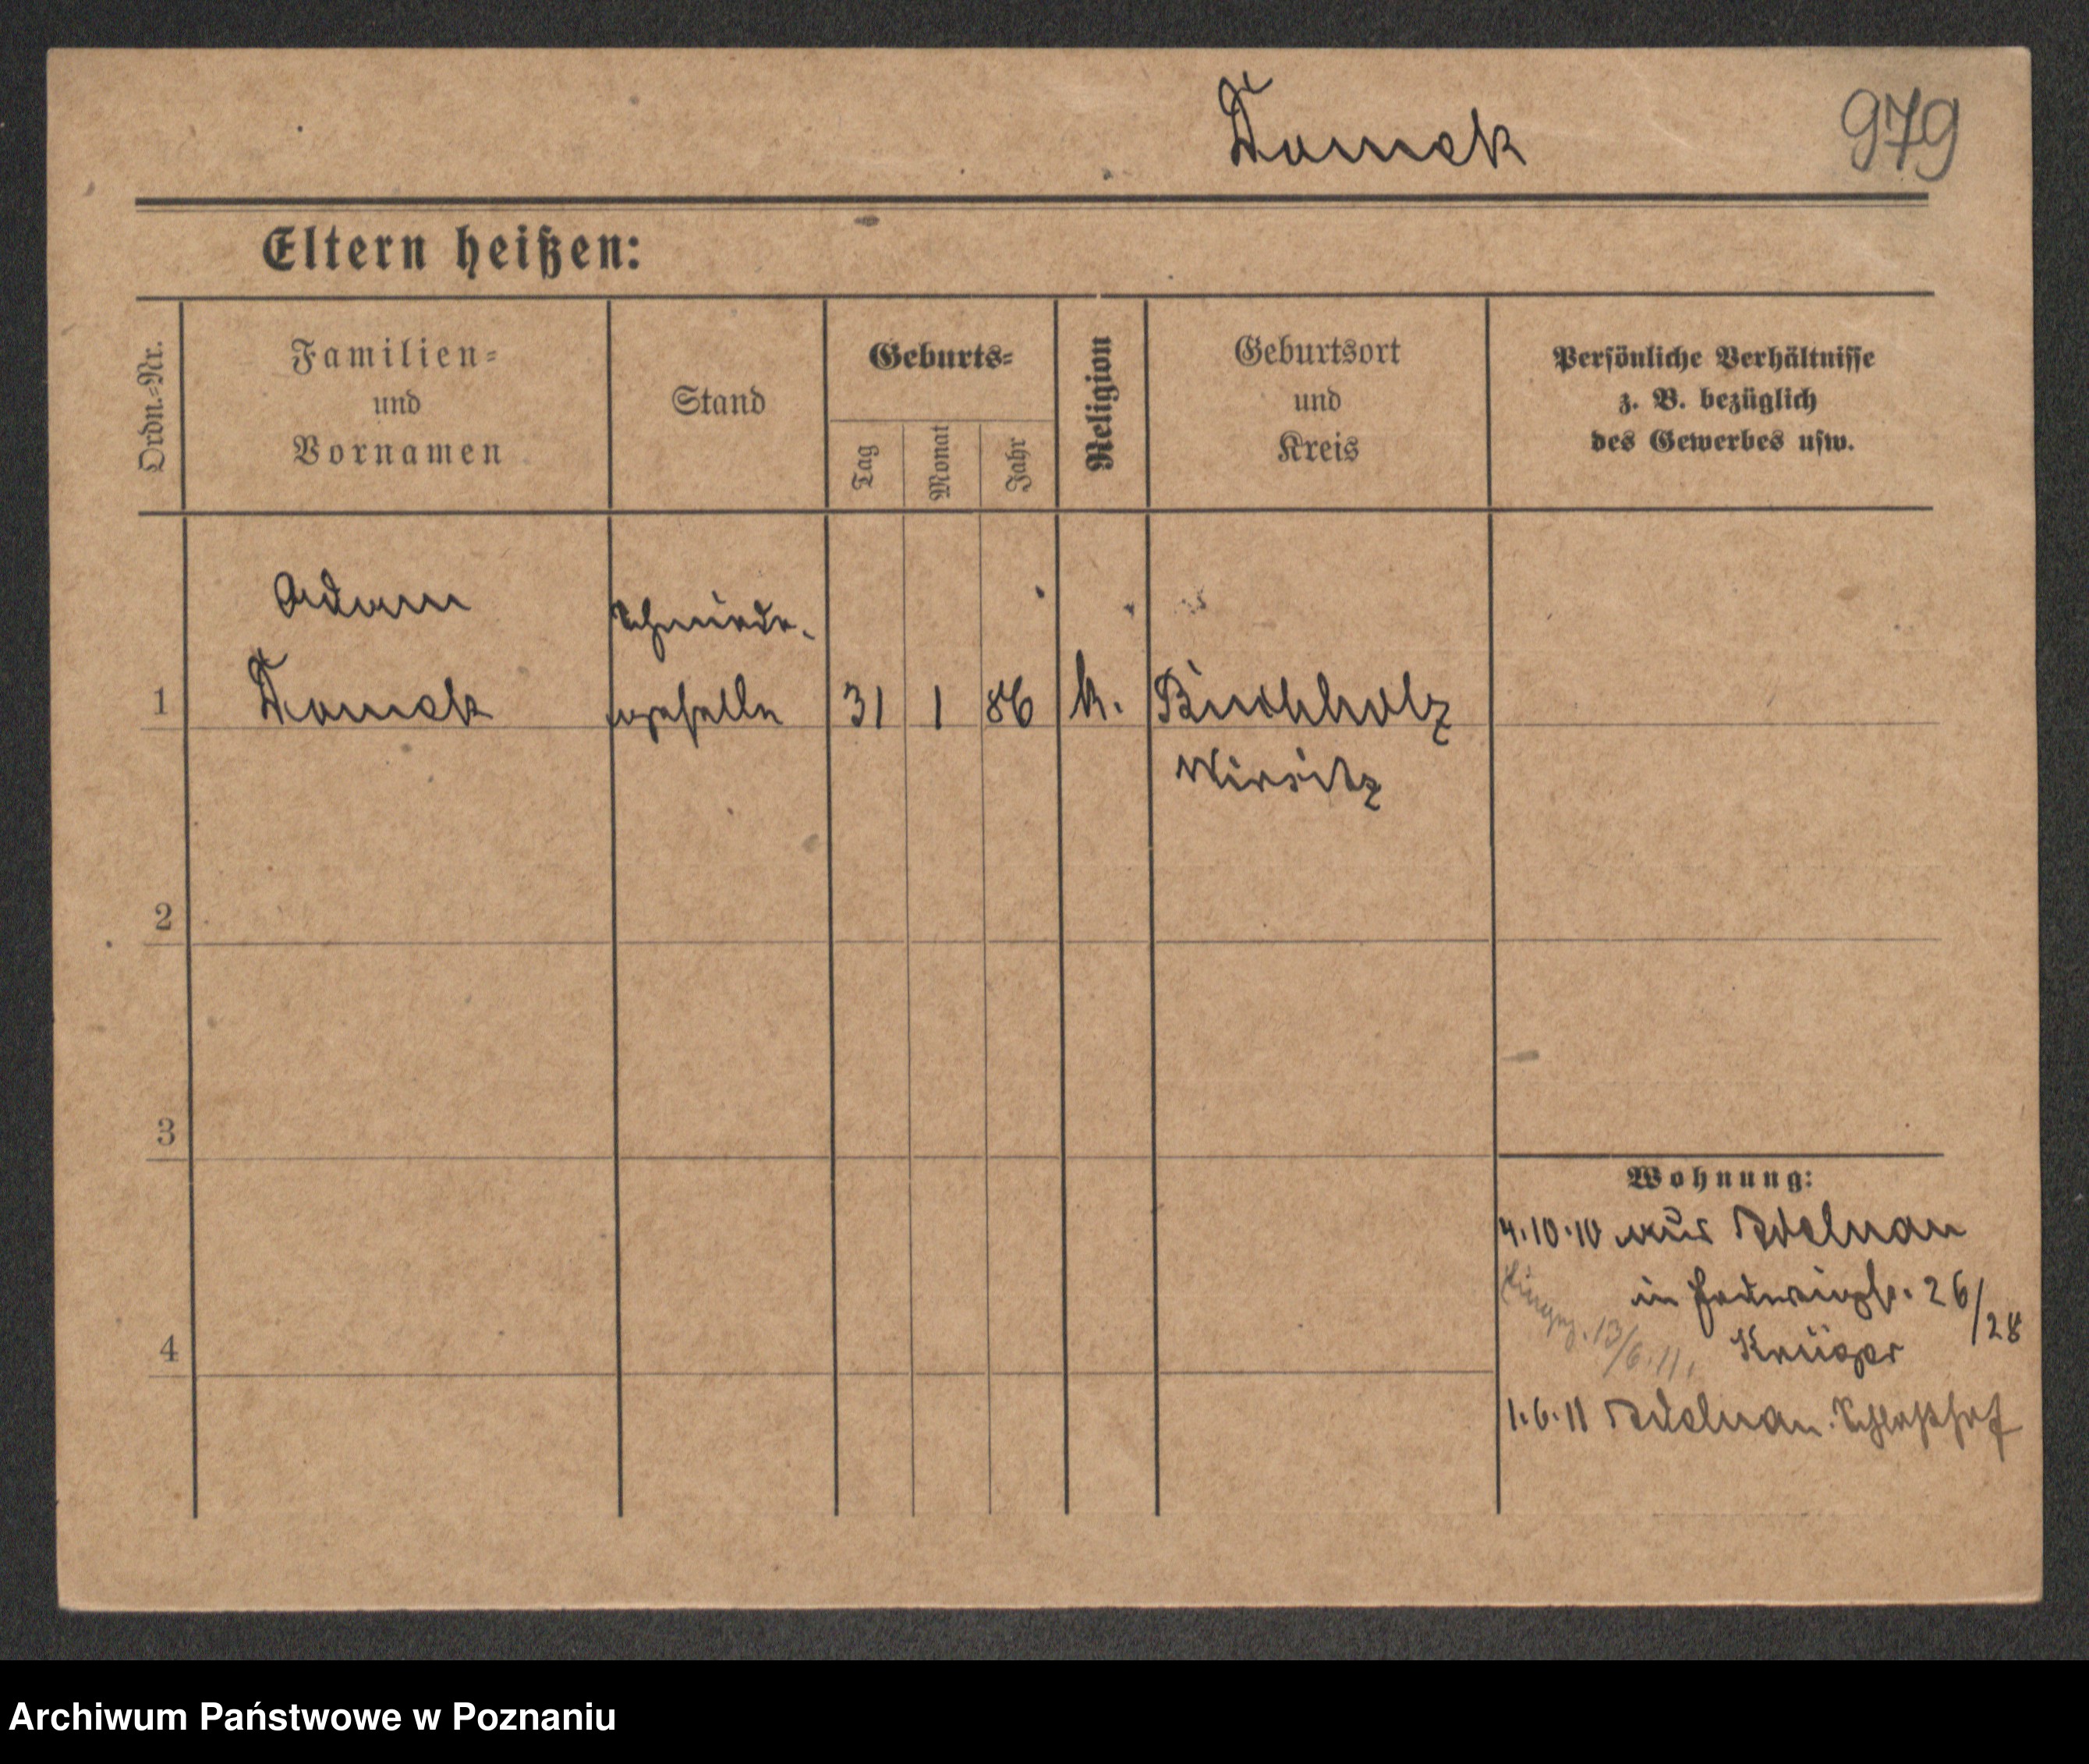 Tomek
979
Eltern heißen:
Ordn.=Nr.
Familien=
und
Vornamen
Stand
Geburts=
Tag
Monat
Jahr
Religion
Geburtsort
und
Kreis
Persönliche Verhältnisse
z. B. bezüglich
des Gewerbes usw.
1
Adam
Tomek
Schmiede-
geselle
31
1
86
k.
Buchholz
Wirsitz
2
3
4
Wohnung:
4.10.10 aus Adelnau
in 26/28
Krüger
13/6.11.
1.6.11 Adelnau. Schloßhof
Archiwum Państwowe w Poznaniu